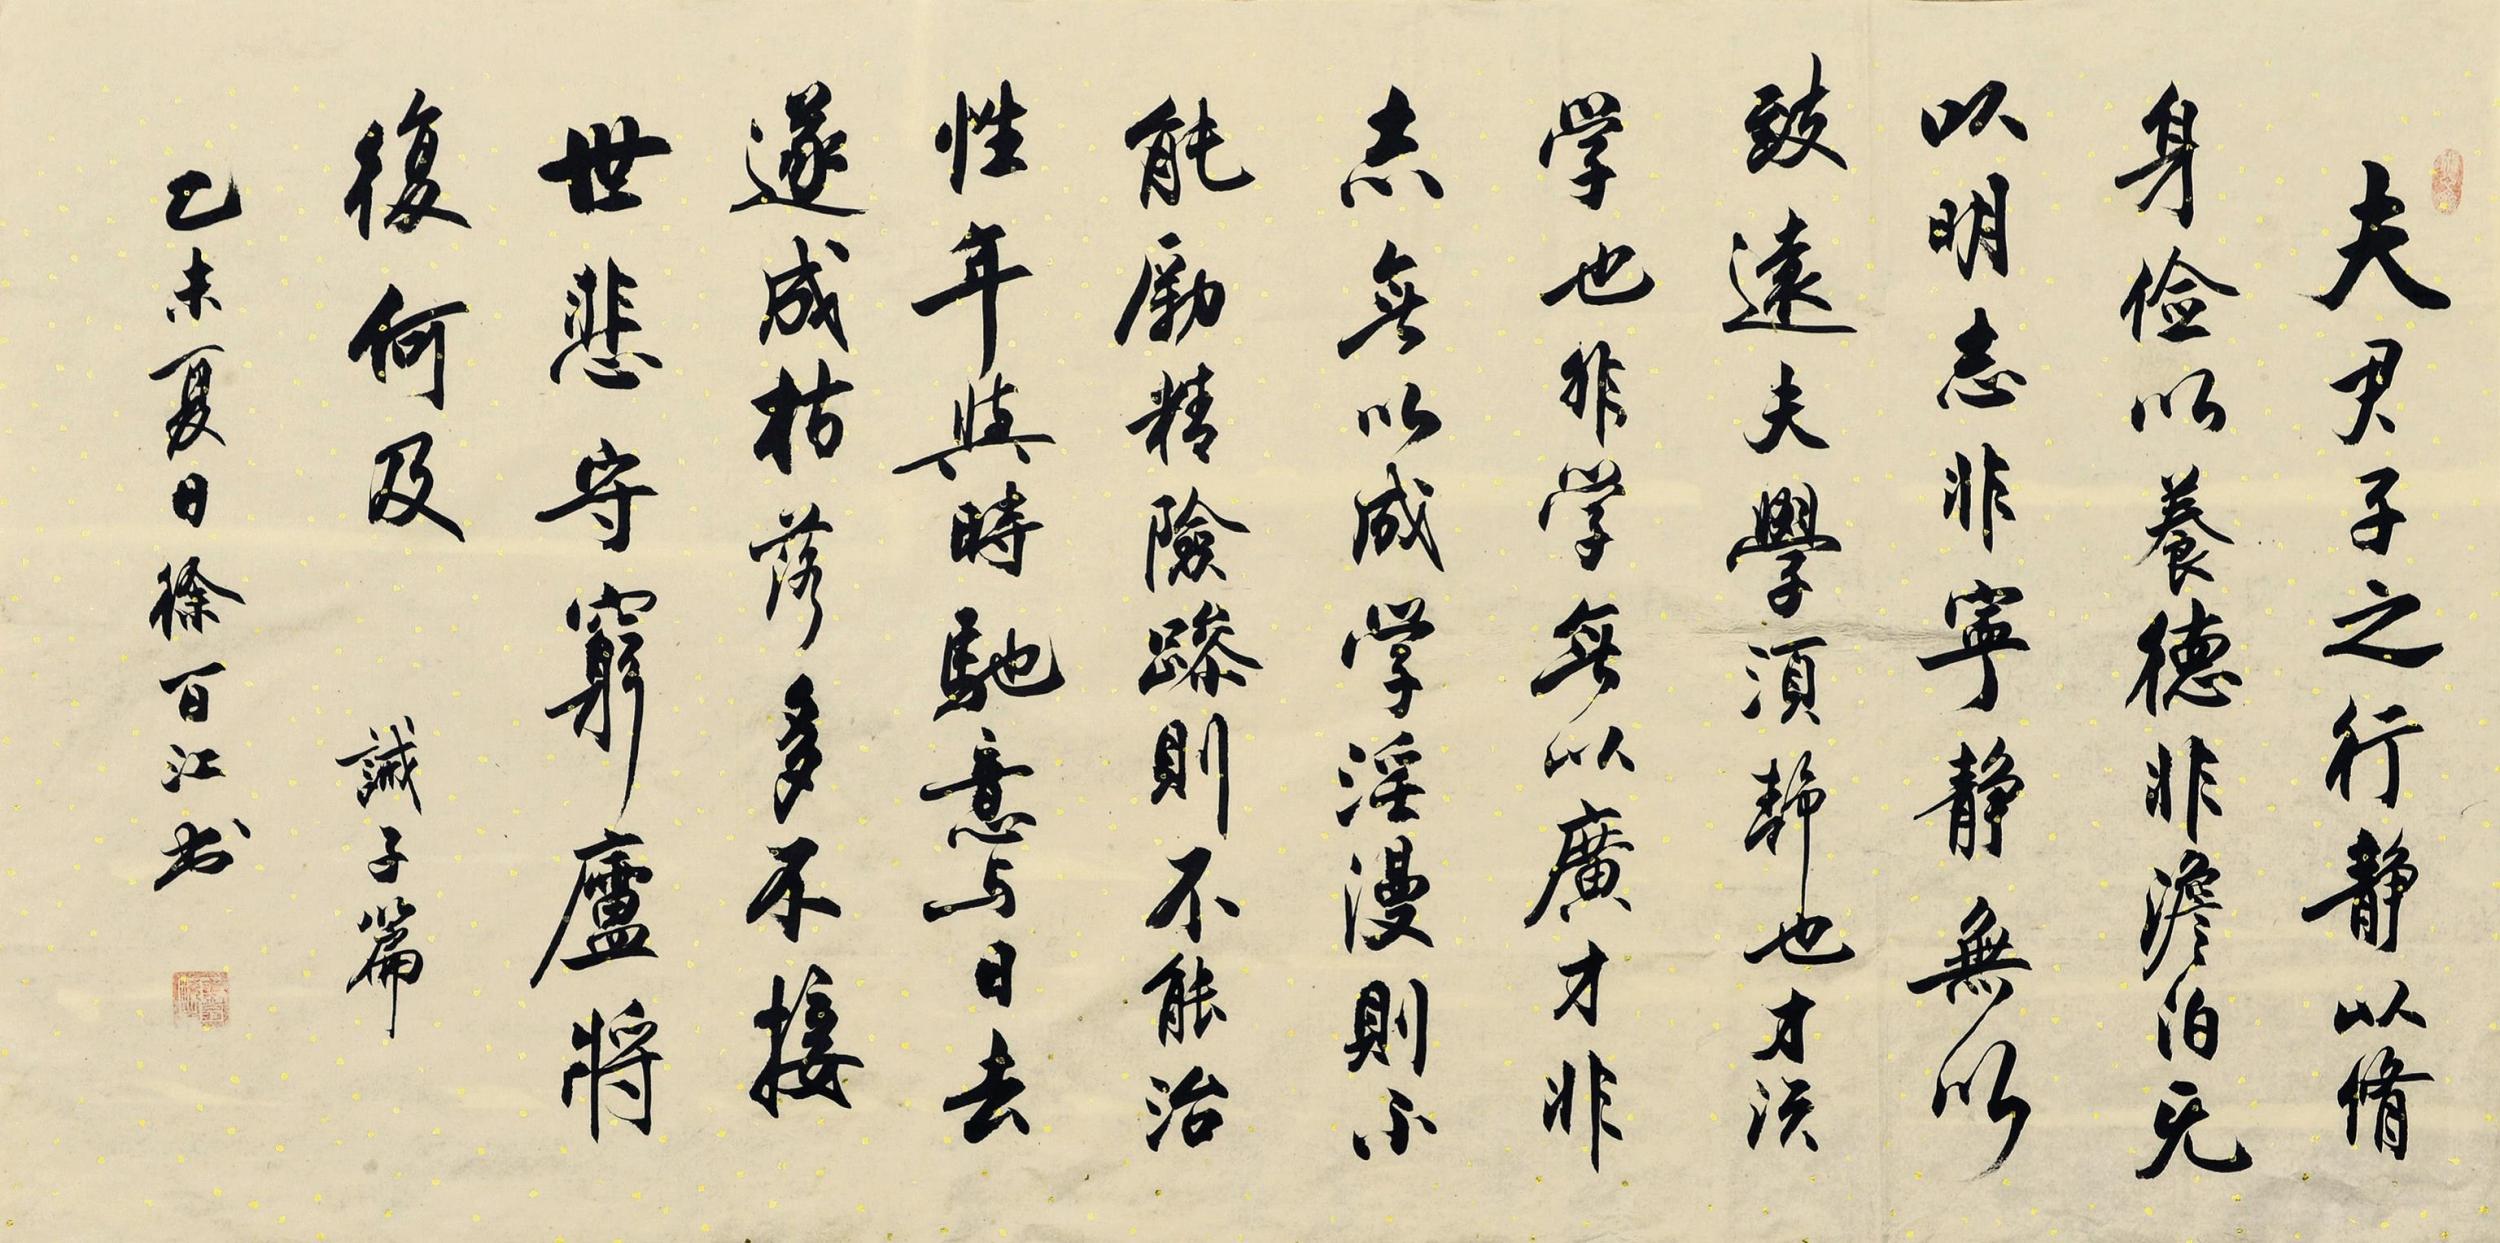 夫君子之行静以脩
身俭以養德非澹泊无
以明志非寧静無以
致遠夫學須静也才须
学也非学無以廣才非
志無以成学淫漫則不
能励精險躁則不能治
性年與時馳意与日去
遂成枯落多不接
世悲守窮廬將
復何及
誡子篇
乙未夏日徐百江书